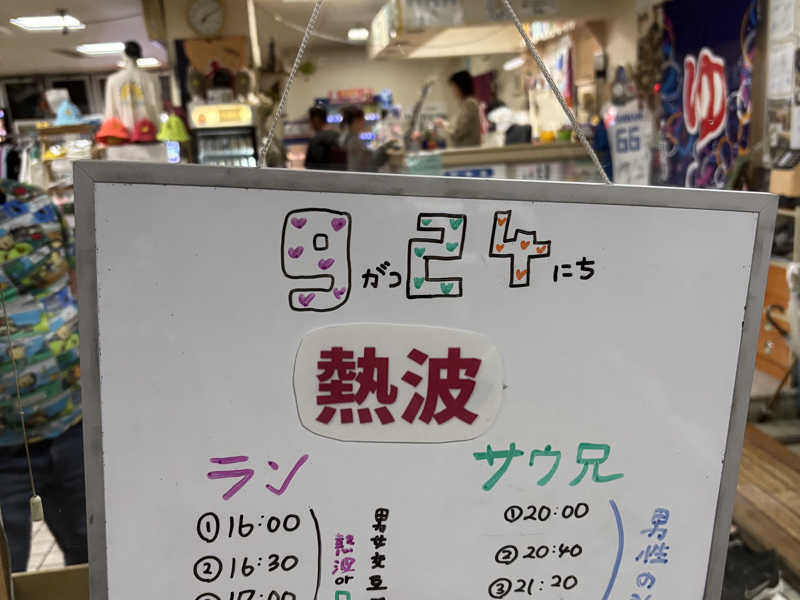 9がつ24にち
熱波
ラン
①16:00
②16:30
17:00
熱波or
男女交互
サウ兄
①20:00
②20:40
③21:20
男性の
ゆ
66